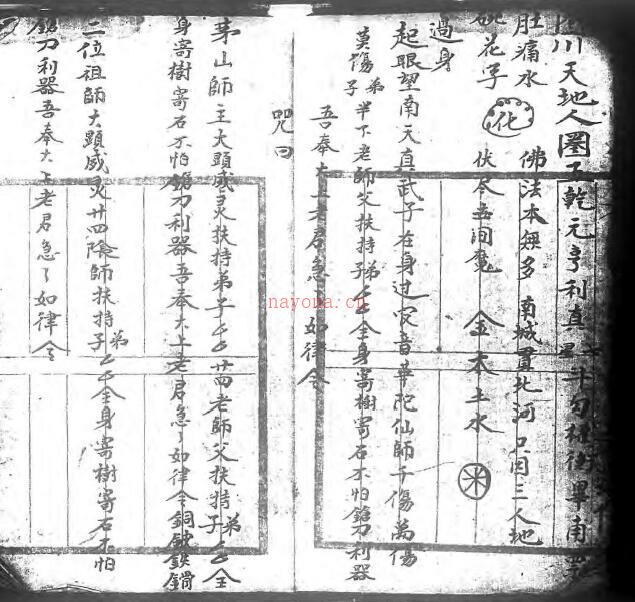 川天地人圈子乾元亨利真
肚痛水 佛法本無多 南城 北河 只因三人地
花字 化 伏尽世间魔 金木土水
過身
起眼望南天真武子在身过 音華陀仙師千傷萬傷
莫傷弟子半下老師父扶持弟子厶厶全身寄樹寄石不怕鎗刀利器
吾奉太上老君急了如律令
咒曰
茅山師主大顕威灵扶持弟子厶厶廿四老師父扶持弟子厶厶全
身寄樹寄石不怕鎗刀利器吾奉太上老君急了如律令銅 鉄鎖
二位祖師大顕威灵廿四陰師扶持弟子厶厶全身寄樹寄石不怕
鎗刀利器吾奉太上老君急了如律令
nayona.cn